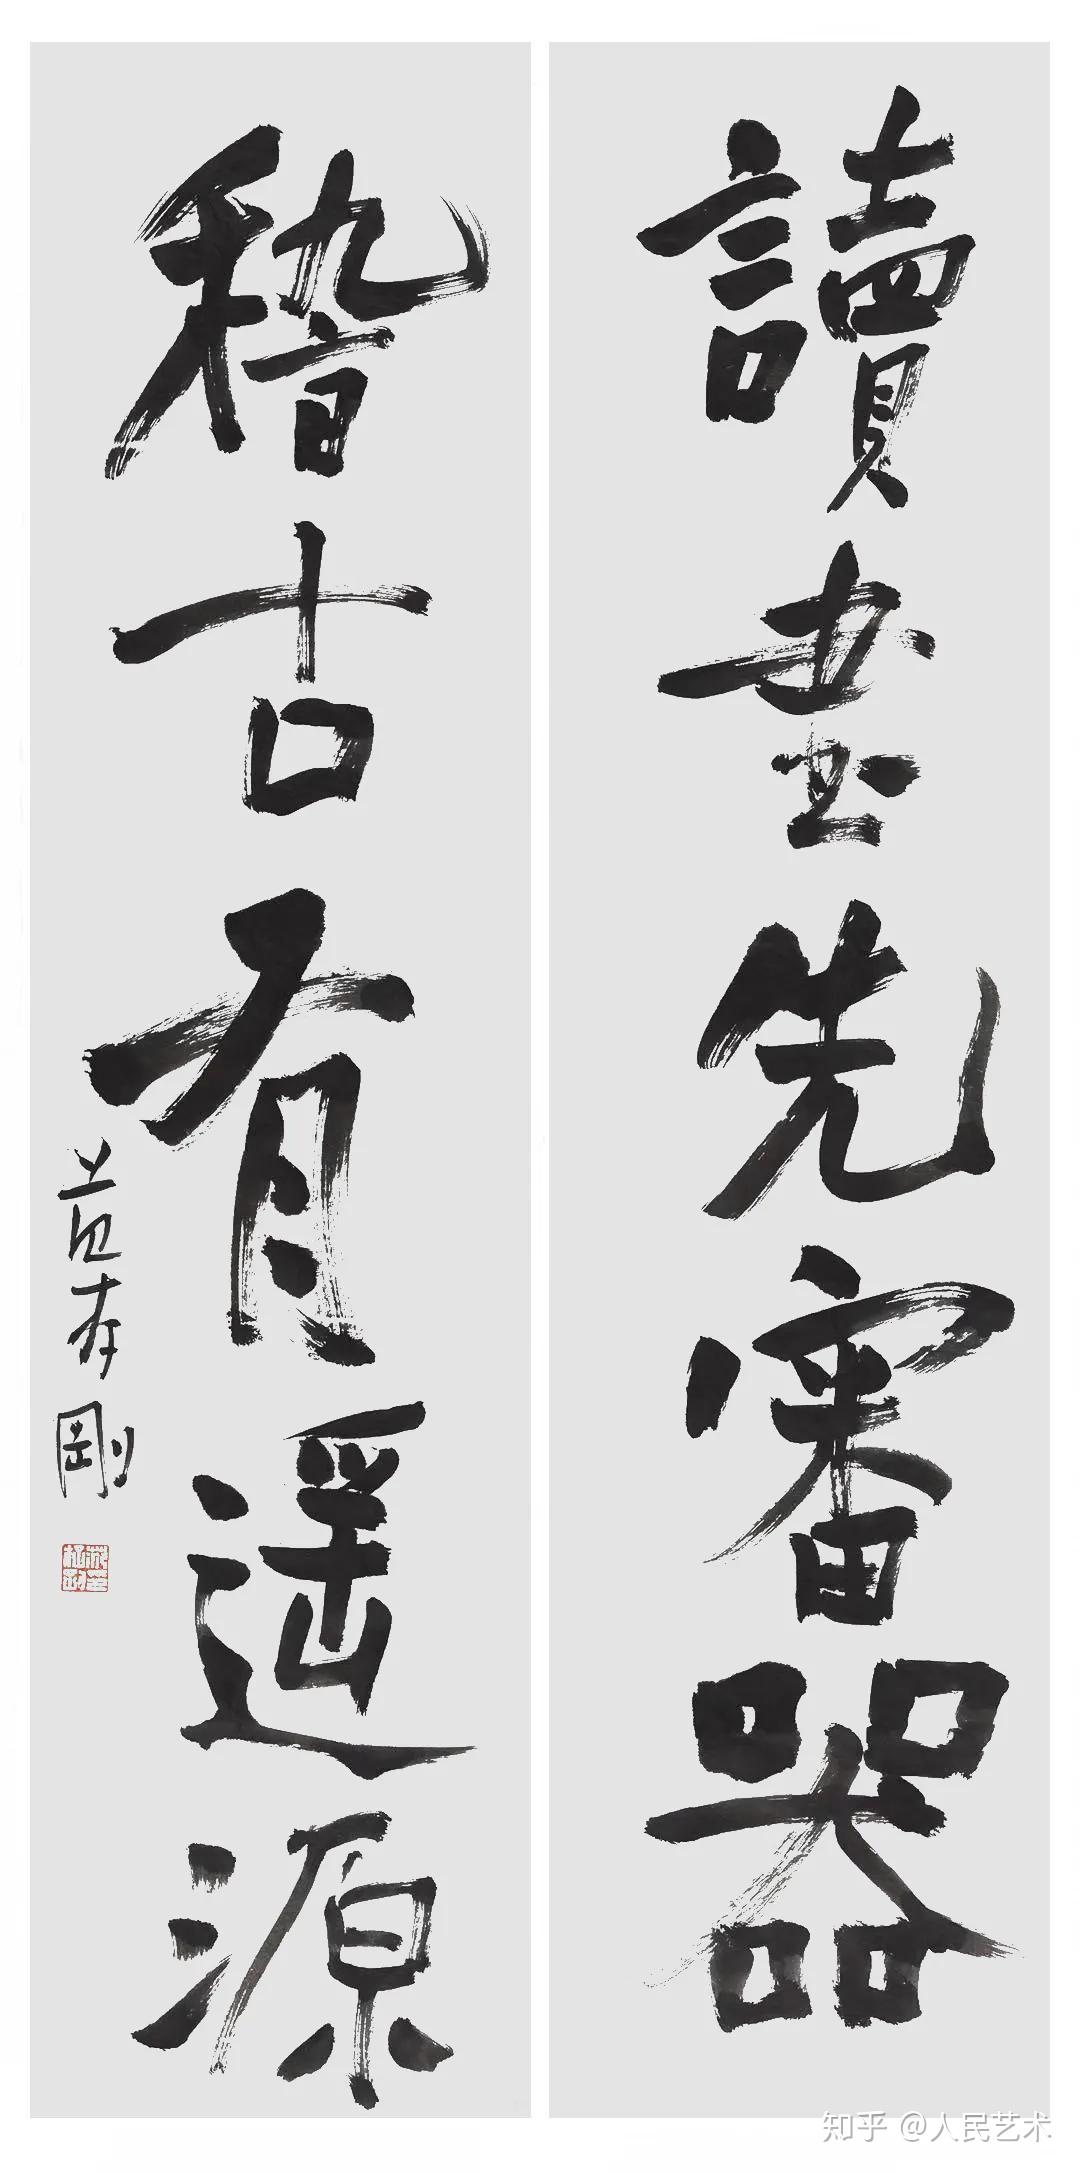 讀書先審器
稽古有遥源
范存剛
知乎 @人民艺术